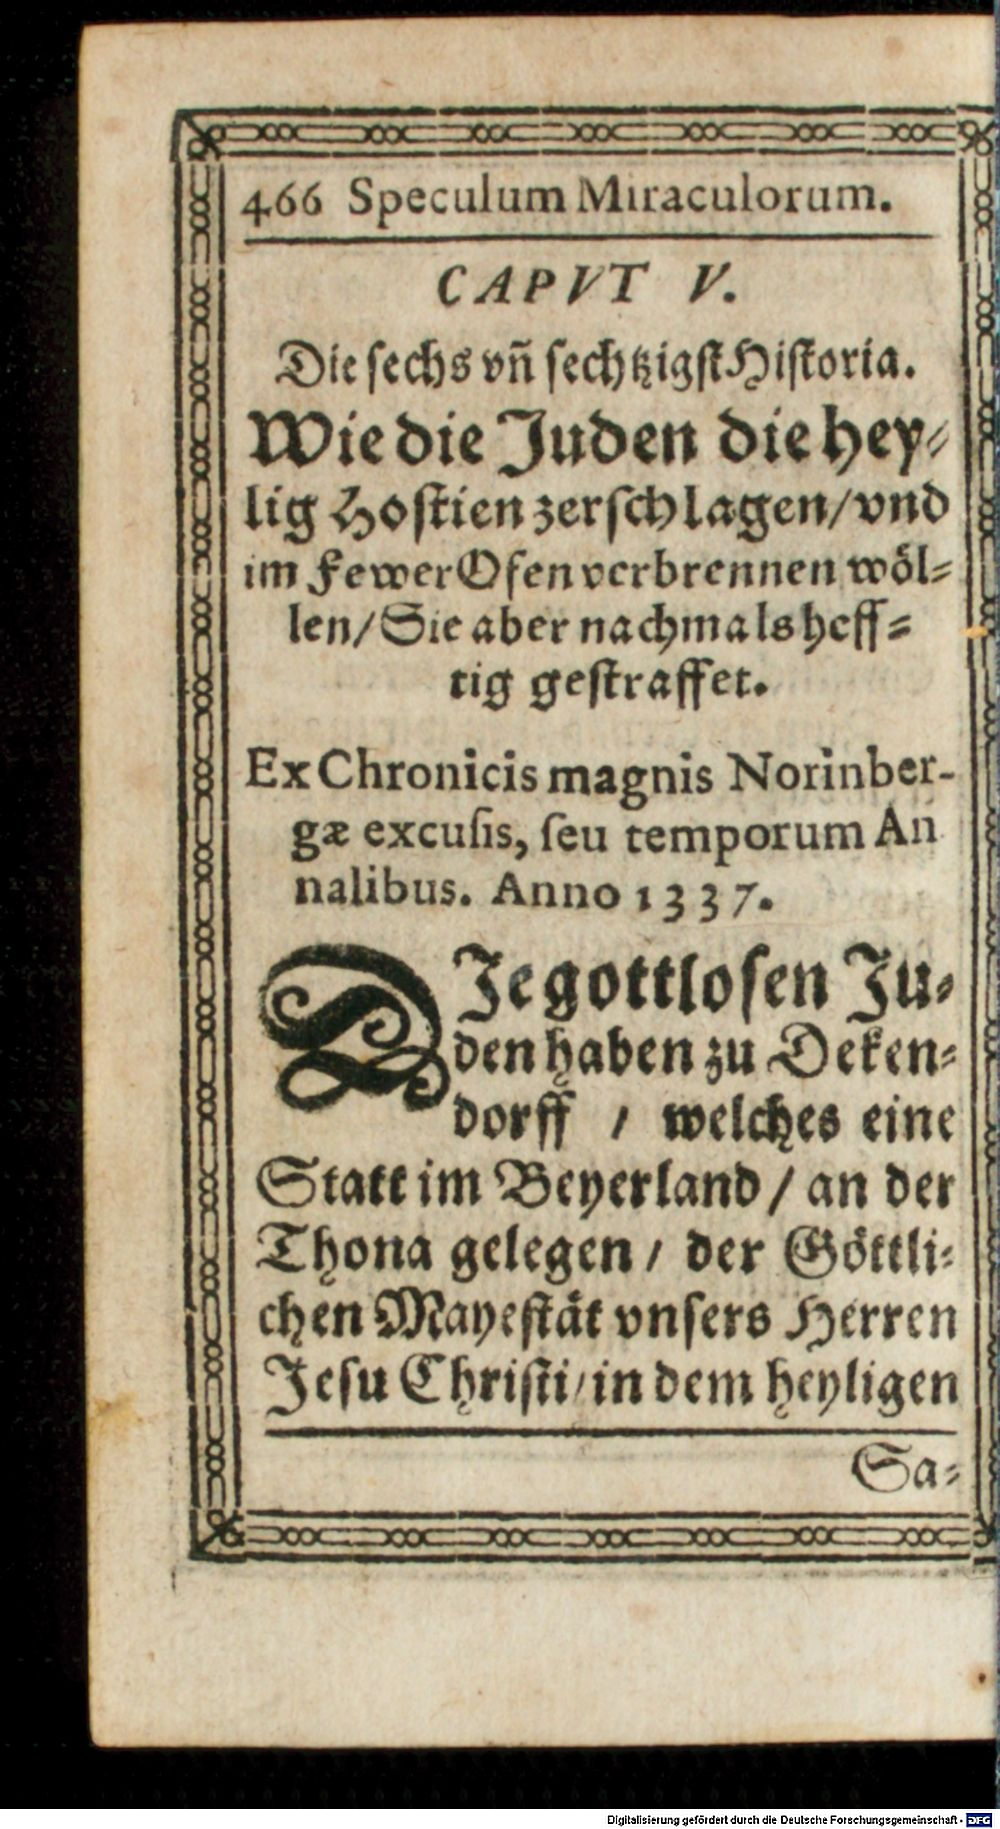 466 Speculum Miraculorum.
CAPVT V.
Die sechs vñ sechtzigst Historia.
Wie die Juden die hey⸗
lig Hostien zerschlagen/vnd
im Fewer Ofen verbrennen wöl⸗
len/Sie aber nachmals heff⸗
tig gestraffet.
Ex Chronicis magnis Norinber-
gæ excusis, seu temporum An
nalibus. Anno 1337.
DJe gottlosen Ju⸗
den haben zu Deken⸗
dorff / welches eine
Statt im Beyerland / an der
Thona gelegen / der Göttli⸗
chen Mayestät vnsers Herren
Jesu Christi/in dem heyligen
Sa⸗
Digitalisierung gefördert durch die Deutsche Forschungsgemeinschaft - DFG